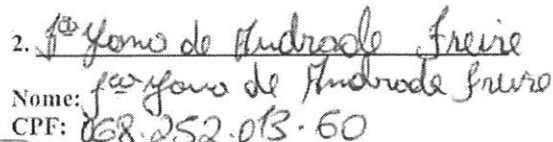 2. Fco Yono de Andrade Freire
Nome: fco Yono de Andrade freire
CPF: 068.252.013-60